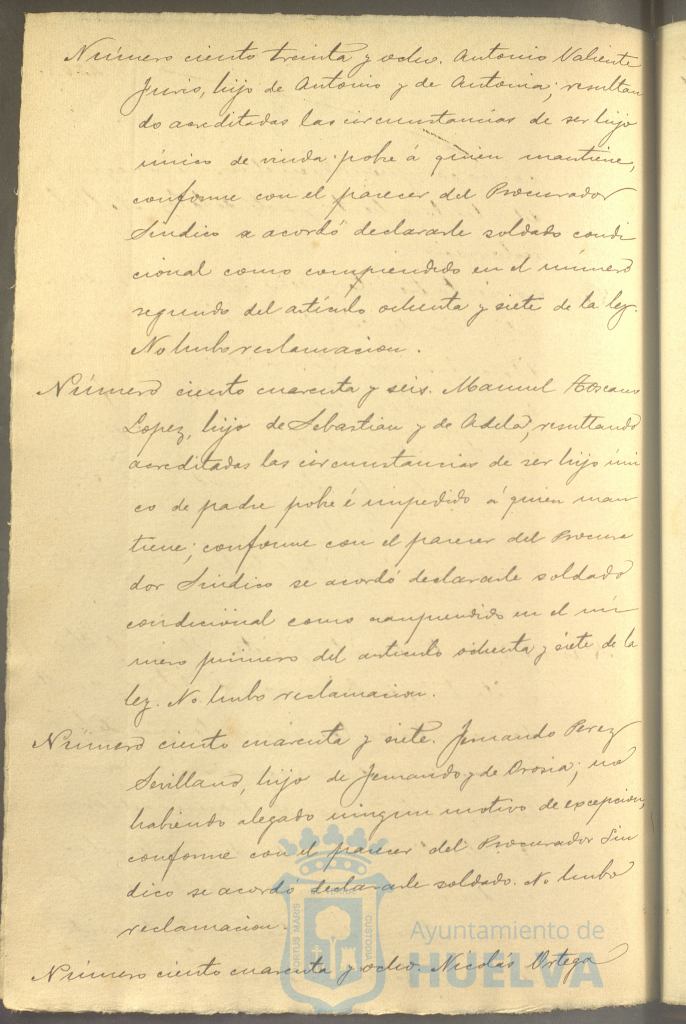 Número ciento treinta y ocho. Antonio Valiente
hijo de Antonio y de Antonia; resultan
do acreditadas las circunstancias de ser hijo
único de viuda pobre á quien mantiene,
conforme con el parecer del Procurador
Sindico se acordó declararle soldado condi
cional como comprendido en el número
segundo del artículo ochenta y siete de la ley.
No hubo reclamacion.
Número ciento cuarenta y seis. Manuel Toscano
Lopez, hijo de Sebastian y de Adela, resultando
acreditadas las circunstancias de ser hijo úni
co de padre pobre é impedido á quien man
tiene; conforme con el parecer del Procura
dor Sindico se acordó declararle soldado
condicional como comprendido en el nú
mero primero del articulo ochenta y siete de la
ley. No hubo reclamacion.
Número ciento cuarenta y siete. Fernando Perez
Sevillano, hijo de Fernando y de Orosia; no
habiendo alegado ningun motivo de excepcion,
conforme con el parecer del Procurador Sin
dico se acordó declararle soldado. No hubo
reclamacion.
Número ciento cuarenta y ocho. Nicolás Ortega
PORTUS MARIS
CUSTODIA
Ayuntamiento de
HUELVA